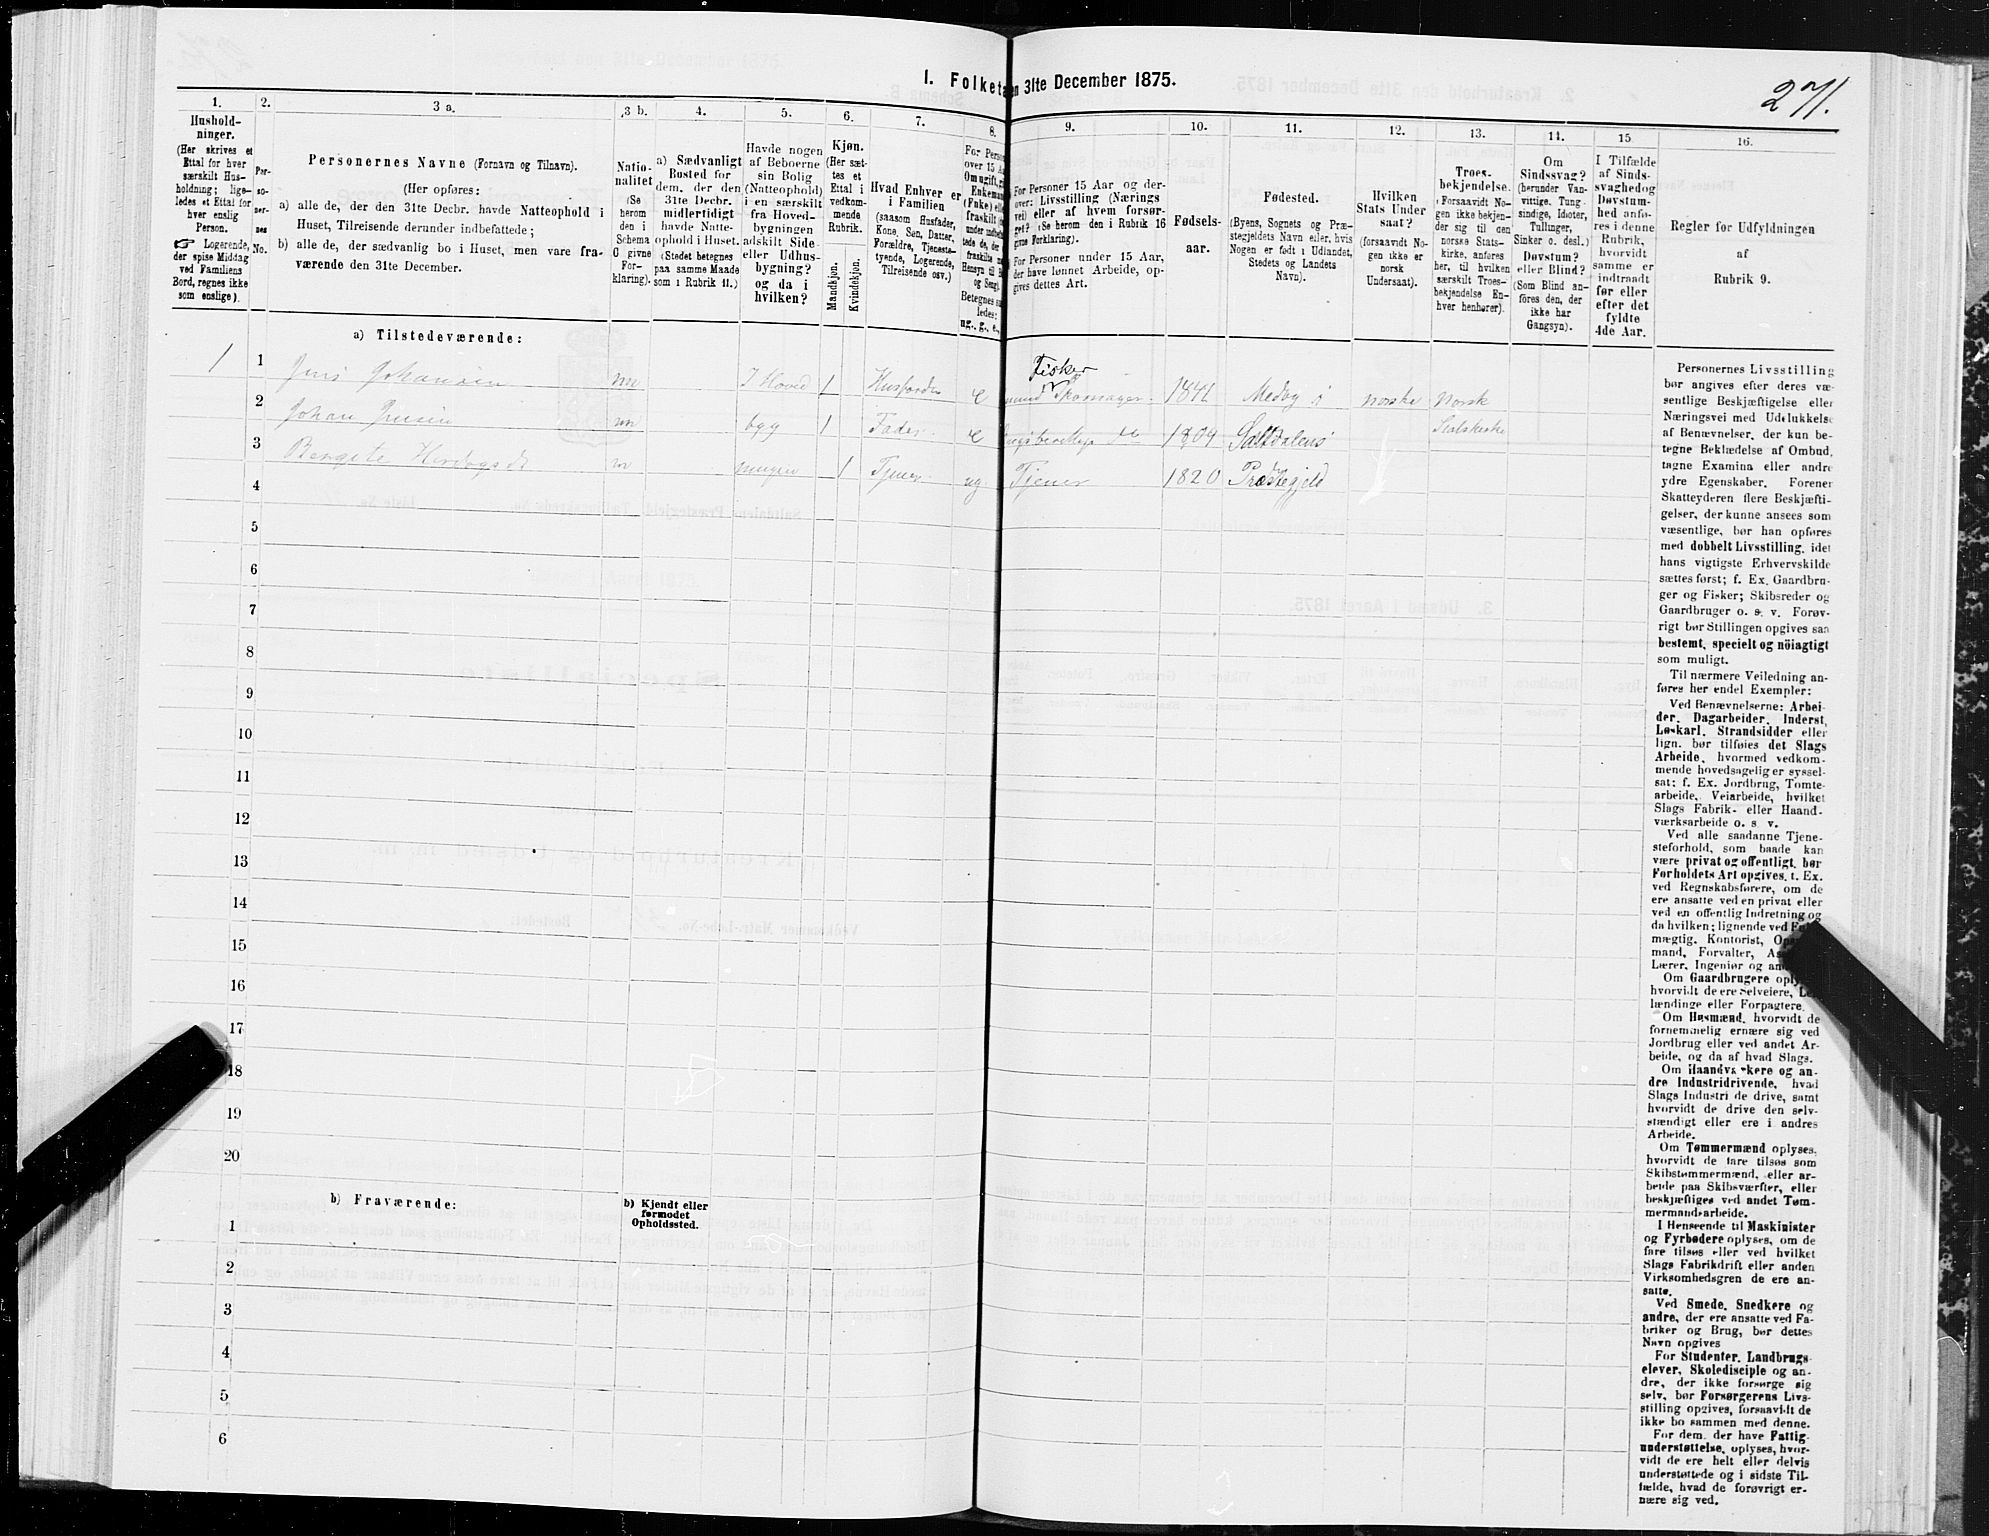 271.
I. Folketa en 31te December 1875.
1.
Hushold-
ninger.
(Her skrives et
Ettal for hver
særskilt Hus-
holdning; lige-
ledes et Ettal for
hver enslig
Person.
☞ Logerende,
der spise Middag
ved Familiens
Bord, regnes ikke
som enslige).
2.
Per-
so-
ner-
nes
No.
3 a.
Personernes Navne (Fornavn og Tilnavn).
(Her opføres:
a) alle de, der den 31te Decbr. havde Natteophold i
Huset, Tilreisende derunder indbefattede;
b) alle de, der sædvanlig bo i Huset, men vare fra-
værende den 31te December.
3 b.
Natio-
nalitet
(Se
herom
den i
Schema
C givne
For-
klaring).
4.
a) Sædvanligt
Bosted for
dem, der den
31te Decbr.
midlertidigt
havde Natte-
ophold i Huset.
(Stedet betegnes
paa samme Maade
som i Rubrik 11.)
5.
Havde nogen
af Beboerne
sin Bolig
(Natteophold)
i en særskilt
fra Hoved-
bygningen
adskilt Side-
eller Udhus-
bygning?
og da i
hvilken?
6.
Kjøn.
(Her sæt-
tes et
Ettal i
vedkom-
mende
Rubrik.
Mandkjøn.
Kvindekjøn.
7.
Hvad Enhver er
i Familien
(saasom Husfader,
Kone, Søn, Datter,
Forældre, Tjeneste-
tyende, Logerende,
Tilreisende osv.)
8.
For Perso
over 15 A
Om ugift, gi
Enkemand
(Enke) elle
fraskilt
Betegnes sa
ledes:
ug., g., e.,
9.
For Personer 15 Aar og der-
over: Livsstilling (Nærings
vei) eller af hvem forsør-
get? (Se herom den i Rubrik 16
givne Forklaring).
For Personer under 15 Aar,
der have lønnet Arbeide, op-
gives dettes Art.
10.
Fødsels-
aar.
11.
Fødested.
(Byens, Sognets og Præ-
stegjeldets Navn eller, hvis
Nogen er født i Udlandet,
Stedets og Landets
Navn).
12.
Hvilken
Stats Under
saat?
(forsaavidt No-
gen ikke er
norsk
Undersaat).
13.
Troes-
bekjendelse.
(Forsaavidt No-
gen ikke bekjen-
der sig til den
norske Stats-
kirke, anføres
her, til hvilken
særskilt Troes-
bekjendelse En-
hver henhører).
14.
Om
Sindssvag?
(herunder Van-
vittige, Tung-
sindige, Idioter,
Tullinger,
Sinker o. desl.)
Døvstum?
eller Blind?
(Som Blind an-
føres den, der
ikke har
Gangsyn).
15.
I Tilfælde
af Sinds-
svaghed og
Døvstum-
hed anfø-
res i denne
Rubrik,
hvorvidt
samme er
indtraadt
før eller
efter det
fyldte
4de Aar.
16.
Regler for Udfyldningen
af
Rubrik 9.
a) Tilstedeværende:
1 1 Jens Johansen nn I Hoved 1 Husfader e Fisker Skomager 1841 Medby i norske Norsk
2 Johan Jensen nn byg 1 Fader e 1809 Saltdalens Statskirke
3 Bergite nn ningen 1 Tjener ug Tjener 1820 Præstegjeld
4
5
6
7
8
9
10
11
12
13
14
15
16
17
18
19
20
b) Fraværende:
b) Kjendt eller
formodet
Opholdssted.
1
2
3
4
5
6
Personernes Livsstilling
bør angives efter deres væ-
sentlige Beskjæftigelse eller
Næringsvei med Udelukkelse
af Benævnelser, der kun be-
tegne Beklædelse af Ombud,
tagne Examina eller andre
ydre Egenskaber. Forener
Skatteyderen flere Beskjæfti-
gelser, der kunne ansees som
væsentlige, bør han opføres
med dobbelt Livsstilling, idet
hans vigtigste Erhvervskilde
sættes først; f. Ex. Gaardbru-
ger og Fisker; Skibsreder og
Gaardbruger o. s. v. Forøv-
rigt bør Stillingen opgives saa
bestemt, specielt og nöiagtigt
som muligt.
Til nærmere Veiledning an-
føres her endel Exempler:
Ved Benævnelserne: Arbei-
der, Dagarbeider, Inderst,
Løskarl, Strandsidder eller
lign. bør tilføies det Slags
Arbeide, hvormed vedkom-
mende hovedsagelig er syssel-
sat; f. Ex. Jordbrug, Tomte-
arbeide, Veiarbeide, hvilket
Slags Fabrik- eller Haand-
værksarbeide o. s. v.
Ved alle saadanne Tjene-
steforhold, som baade kan
være privat og offentligt, bør
Forholdets Art opgives, f. Ex.
ved Regnskabsførere, om de
ere ansatte ved en privat eller
ved en offentlig Indretning og
da hvilken; lignende ved
mægtig, Kontorist,
mand, Forvalter,
Lærer, Ingeniør og
Om Gaardbrugere
hvorvidt de ere Selveiere,
lændinge eller Forpagtere.
Om Husmænd, hvorvidt de
fornemmelig ernære sig ved
Jordbrug eller ved andet Ar-
beide, og da af hvad Slags.
Om Haandværkere og an-
dre Industridrivende, hvad
Slags Industri de drive, samt
hvorvidt de drive den selv-
stændigt eller ere i andres
Arbeide.
Om Tømmermænd oplyses,
hvorvidt de fare tilsøs som
Skibstømmermænd, eller ar-
beide paa Skibsværfter, eller
beskjæftiges ved andet Tøm-
mermandsarbeide.
I Henseende til Maskinister
og Fyrbødere oplyses, om de
fare tilsøs eller ved hvilket
Slags Fabrikdrift eller anden
Virksomhedsgren de ere an-
satte.
Ved Smede, Snedkere og
andre, der ere ansatte ved Fa-
briker og Brug, bør dettes
Navn opgives
For Studenter, Landbrugs-
elever, Skoledisciple og an-
dre, der ikke forsørge sig
selv, bør Forsørgerens Livs-
stilling opgives, forsaavidt de
ikke bo sammen med denne.
For dem, der have Fattig-
understøttelse, oplyses, hvor-
vidt de ere helt eller delvis
understøttede og i sidste Til-
fælde, hvad de forøvrigt er-
nære sig ved.